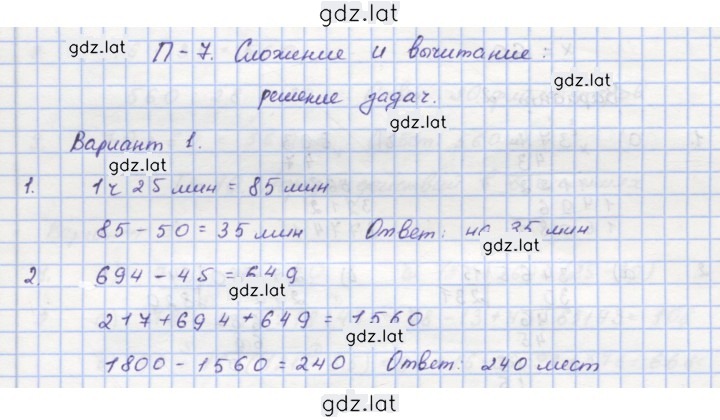 gdz.lat
gdz.lat
П-7. Сложение и вычитание:
gdz.lat
решение задач.
gdz.lat
Вариант 1.
gdz.lat
1. 1ч 25 мин = 85 мин
85 - 50 = 35 мин Ответ: на 35 мин
gdz.lat
2. 694 - 45 = 649
gdz.lat
217 + 694 + 649 = 1560
gdz.lat
1800 - 1560 = 240 Ответ: 240 мест
gdz.lat